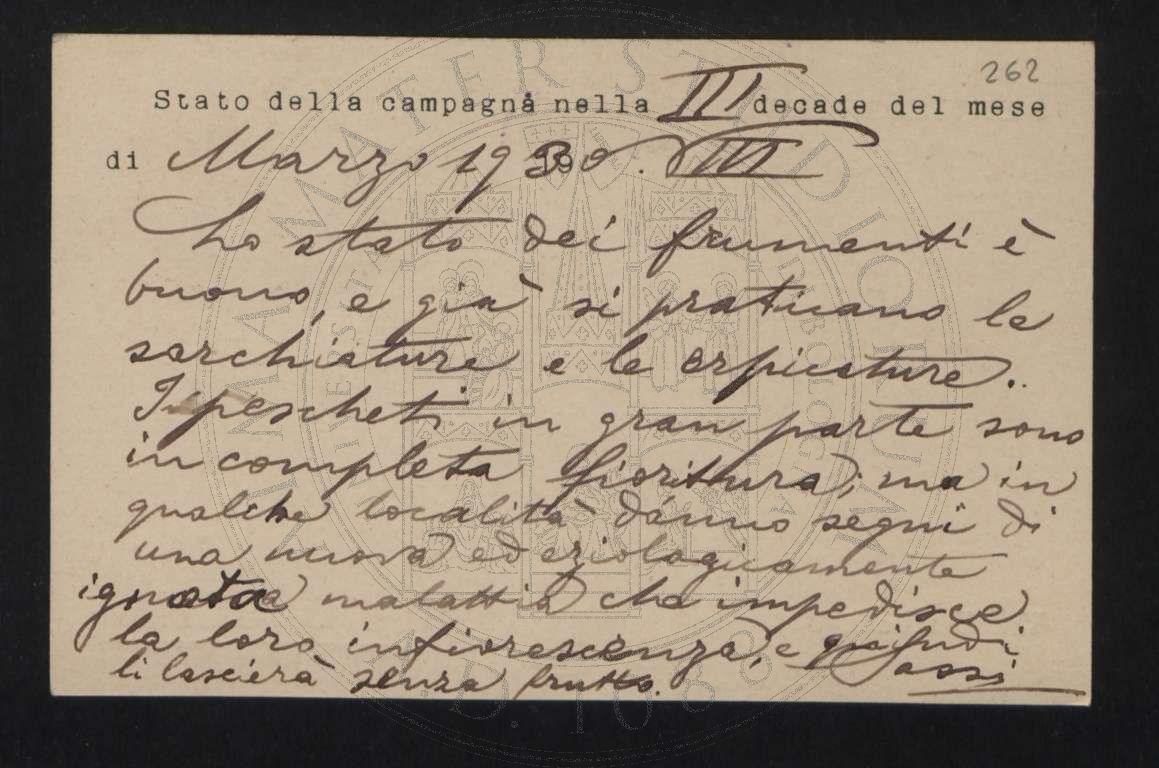 262
Stato della campagna nella III decade del mese
di Marzo 1930. VIII
Lo stato dei frumenti è
buono, e già si praticano le
sarchiature e le erpicature.
I pescheti in gran parte sono
in completa fioritura; ma in
qualche località dánno segni di
una nuova ed eziologicamente
ignota malattia che impedisce
la loro infiorescenza, e quindi
li lascierà senza frutto. Sassi